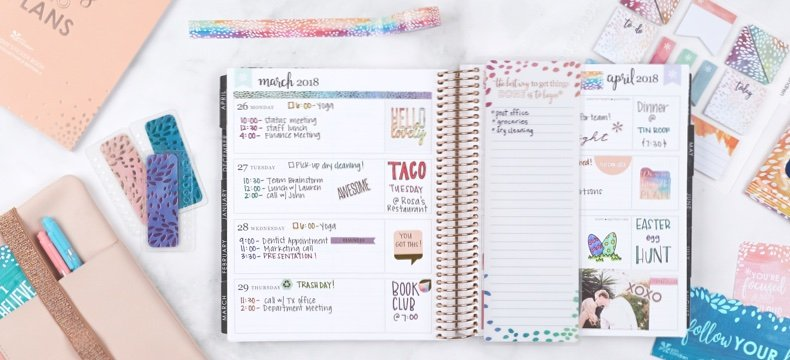 PLANS
march 2018
26 MONDAY
6:00- Yoga
10:00- Status meeting
12:30- staff lunch
4:00- Finance Meeting
HELLO
lovely
27 TUESDAY
Pick-up dry cleaning!
10:30- Team Brainstorm
12:00- Lunch w/ Lauren
2:00- Call w/ John
AWESOME
TACO
TUESDAY
@ Rosa's
Restaurant
28 WEDNESDAY
6:00- Yoga
9:00- Dentist Appointment
11:00- Marketing call
3:30- PRESENTATION!
YOU
GOT THIS!
29 THURSDAY
TRASH DAY!
11:30- Call w/ TX office
2:00- Department Meeting
BOOK
CLUB
@ 7:00
the best way to get things
is to begin
post office
groceries
dry cleaning
april 2018
for team!
Dinner
@
TIN ROOF
(7:30)
EASTER
egg
HUNT
XOXO
to-do
today
BELIEVE
YOU'RE
focused
and
follow YOUR